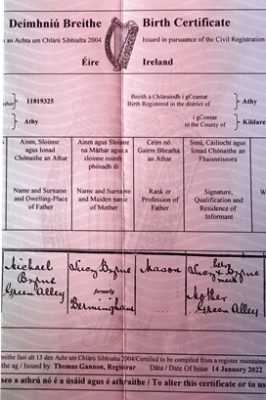 Deimhniú Breithe Birth Certificate
an Achta um Chlárú Sibhialta 2004 Issued in pursuance of the Civil Registration
Éire Ireland
11819325 Breith a Chláraíodh i gCeantar
Birth Registered in the district of Athy
Athy i gContae
in the County of Kildare
Ainm, Sloinne agus Ionad Chónaithe an Athar
Ainm agus Sloinne na Máthar agus a sloinne roimh phósadh di
Céim nó Gairm Bheatha an Athar
Síniú, Cáilíocht agus Ionad Chónaithe an Fhaisnéiseora
Name and Surname and Dwelling-Place of Father
Name and Surname and Maiden name of Mother
Rank or Profession of Father
Signature, Qualification and Residence of Informant
Michael Byrne Green Alley
Lucy Byrne formerly Bermingham
Mason
Lucy x Byrne her mark Mother Green Alley
alt 13 den Acht um Chlárú Sibhialta 2004/Certified to be compiled from a register maintained
the ag / Issued by Thomas Gannon, Registrar Dáta / Date Of Issue 14 January 2022
seo a athrú nó é a úsáid agus é athraithe / To alter this certificate or to us